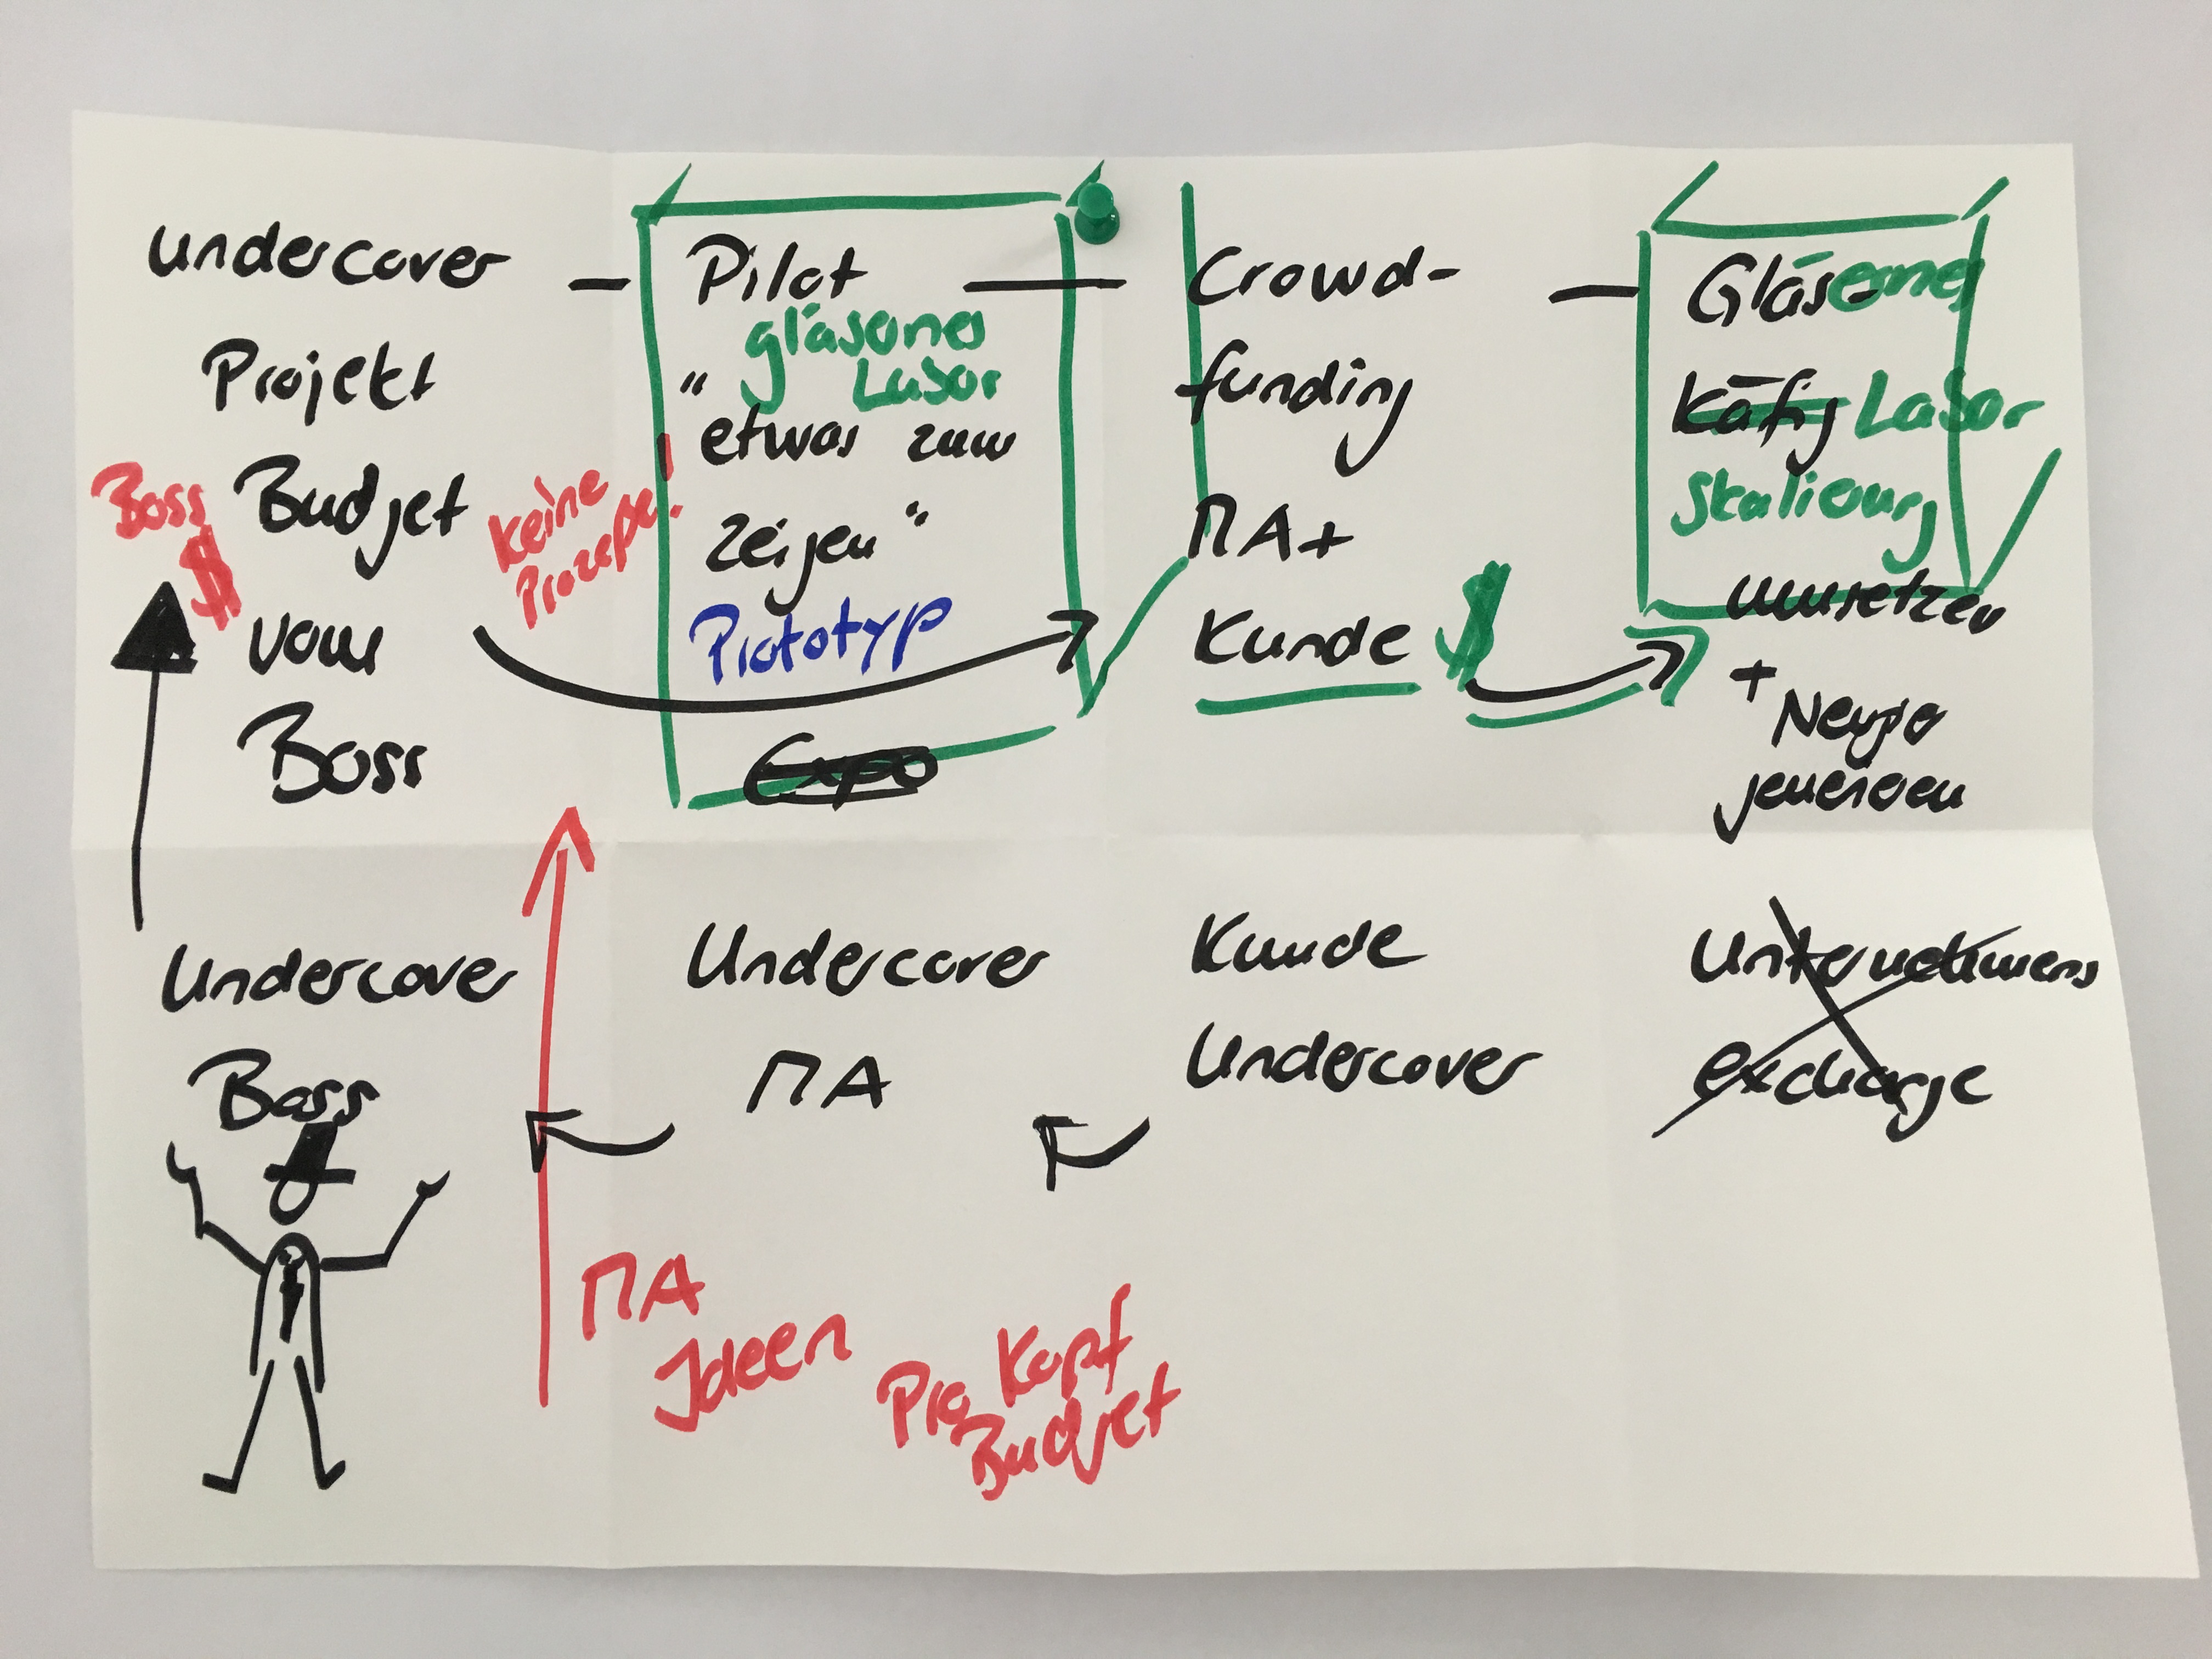 undercover
Projekt
Boss $ Budget
vom
Boss
keine
Prozesse!
Pilot
gläsernes
" Labor
etwas zum
zeigen"
Prototyp
Expo
Crowd-
funding
MA+
Kunde $
Gläsernes
Käfig Labor
Skalierung
umsetzen
+ Neugier
generieren
Undercover
Boss
Undercover
MA
Kunde
Undercover
Unternehmens
exchange
MA
Ideen
Pro Kopf
Budget